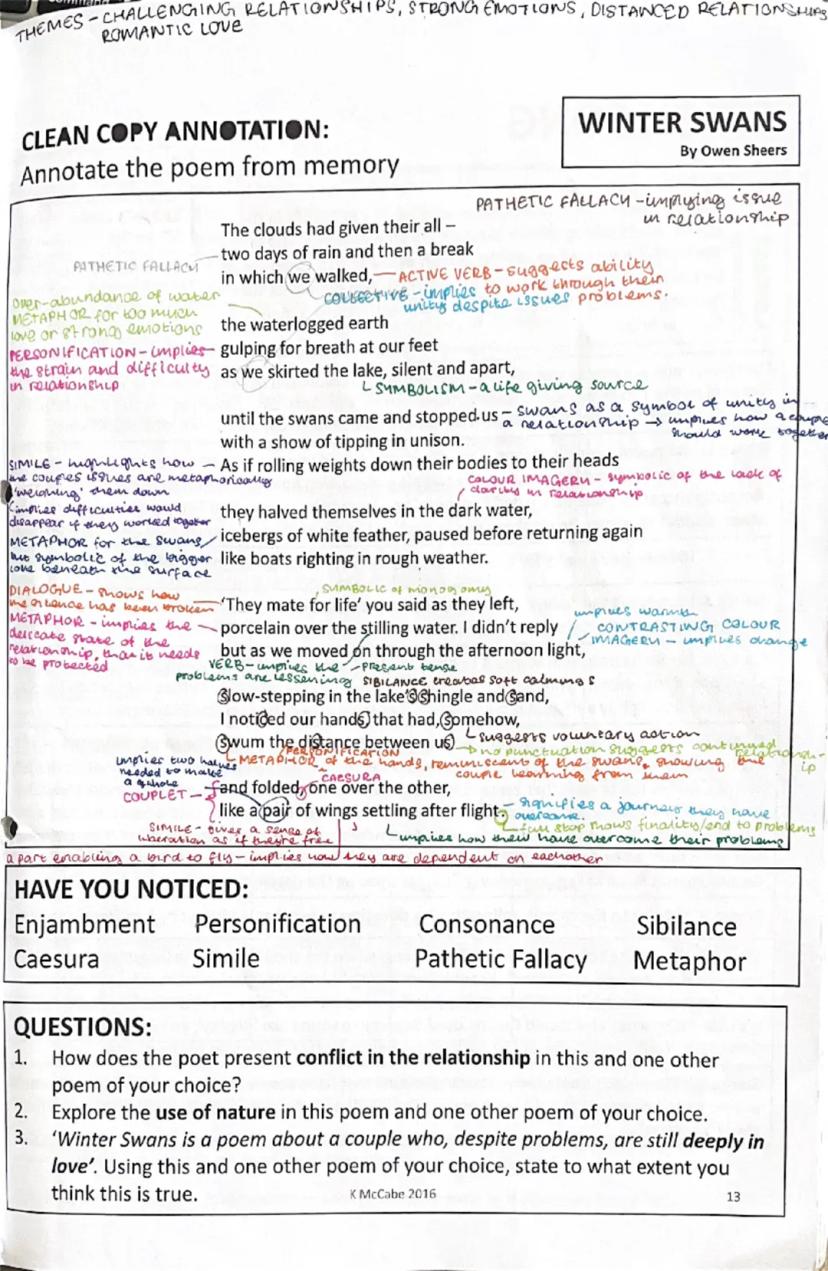 THEMES - CHALLENGING RELATIONSHIPS, STRONG EMOTIONS, DISTANCED RELATIONSHIPS
ROMANTIC LOVE
CLEAN COPY ANNOTATION:
Annotate the poem from memory
WINTER SWANS
By Owen Sheers
PATHETIC FALLACY - implying issue
in relationship
The clouds had given their all –
two days of rain and then a break
PATHETIC FALLACY
in which we walked,
ACTIVE VERB - suggests ability
to work through their
problems.
COLLECTIVE - implies
unity despite issues
over-abundance of water
METAPHOR for too much
love or strong emotions
the waterlogged earth
gulping for breath at our feet
as we skirted the lake, silent and apart,
PERSONIFICATION - implies
the strain and difficulty
in relationship
SYMBOLISM - a life giving source
until the swans came and stopped us
- swans as a symbol of unity in
a relationship → implies how a couple
should work together
with a show of tipping in unison.
As if rolling weights down their bodies to their heads
SIMILE - highlights how
the couples issues are metaphorically
'weighing' them down
(implies difficulties would
disappear if they worked together
COLOUR IMAGERY - symbolic of the lack of
clarity in relationship
they halved themselves in the dark water,
icebergs of white feather, paused before returning again
like boats righting in rough weather.
METAPHOR for the swans,
but symbolic of the bigger
love beneath the surface
DIALOGUE - shows how
the silence has been broken
SYMBOLIC of monogomy
'They mate for life' you said as they left,
porcelain over the stilling water. I didn't reply
but as we moved on through the afternoon light,
METAPHOR - implies the
delicate state of the
relationship, that it needs
to be protected
implies warmth
CONTRASTING COLOUR
IMAGERY - implies change
VERB - implies the
problems are lessening
- present tense
SIBILANCE creates soft calming s
slow-stepping in the lake's shingle and sand,
I noticed our hands, that had, somehow,
swum the distance between us
suggests voluntary action
→ no punctuation suggests continued
relationship
PERSONIFICATION
METAPHOR of the hands, reminiscent of the swans, showing the
couple learning from them
implies two halves
needed to make
a whole
CAESURA
COUPLET
and folded, one over the other,
like a pair of wings settling after flight.
- signifies a journey they have
overcome
full stop shows finality/end to problems
SIMILE - gives a sense of
liberation as if they're free
implies how them have overcome their problems
a part enabling a bird to fly - implies how they are dependent on eachother
HAVE YOU NOTICED:
Enjambment Personification Consonance Sibilance
Caesura Simile Pathetic Fallacy Metaphor
QUESTIONS:
1. How does the poet present conflict in the relationship in this and one other
poem of your choice?
2. Explore the use of nature in this poem and one other poem of your choice.
3. 'Winter Swans is a poem about a couple who, despite problems, are still deeply in
love'. Using this and one other poem of your choice, state to what extent you
think this is true.
K McCabe 2016
13